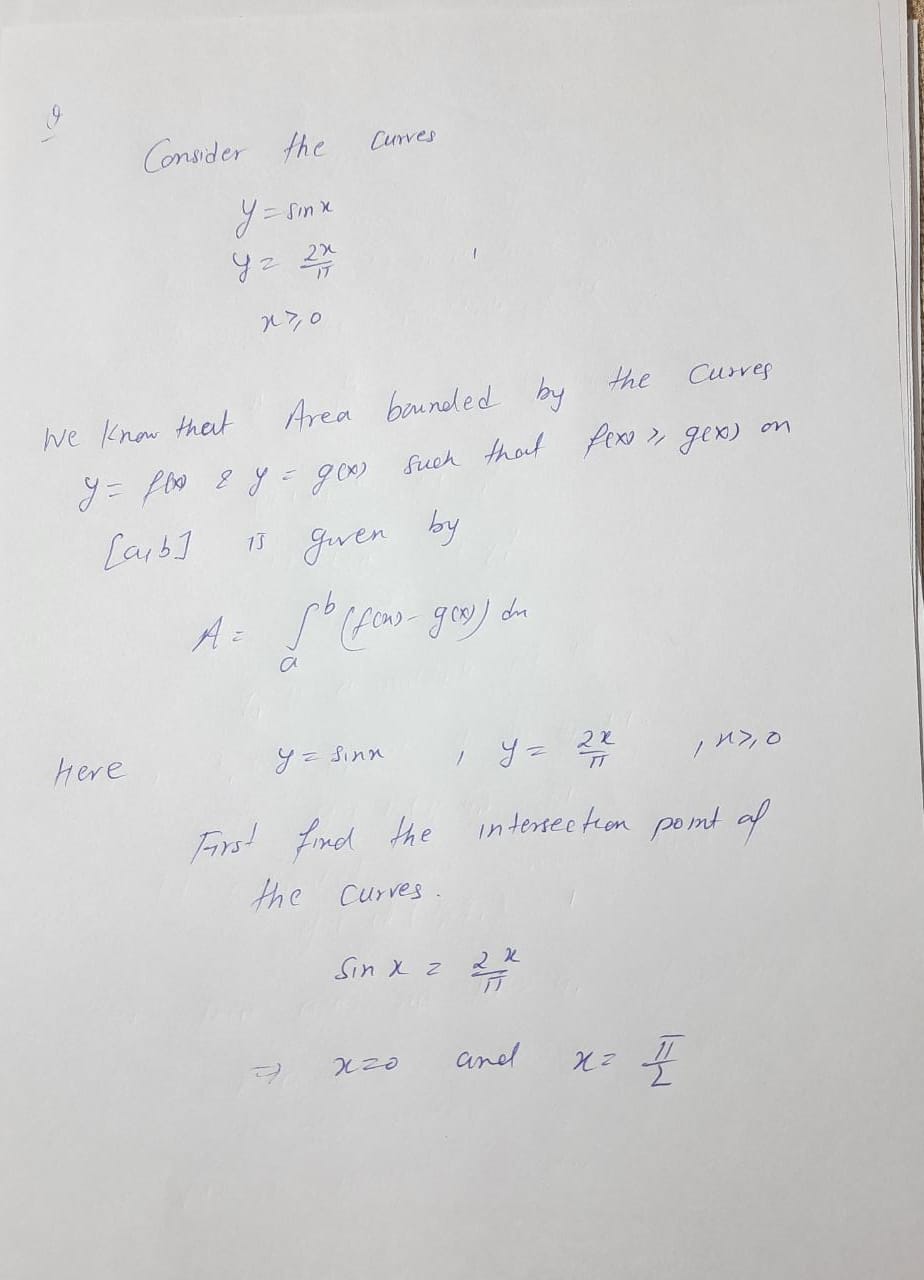 9
Consider the curves
y = sin x
y = 2x/π
x ≥ 0
We know that Area bounded by the curves
y = f(x) & y = g(x) such that f(x) ≥ g(x) on
[a,b] is given by
A = ∫ₐᵇ (f(x) - g(x)) dx
Here y = sin x , y = 2x/π , x ≥ 0
First find the intersection point of
the curves.
Sin x = 2x/π
⇒ x = 0 and x = π/2